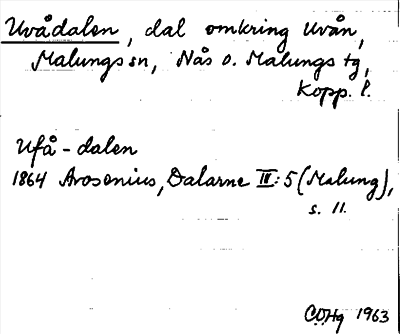 Uvådalen, dal omkring Uvån,
Malungs sn, Nås o. Malungs tg,
Kopp. l.
Ufå-dalen
1864 Arosenius, Dalarne III:5 (Malung),
s. 11.
COHg 1963